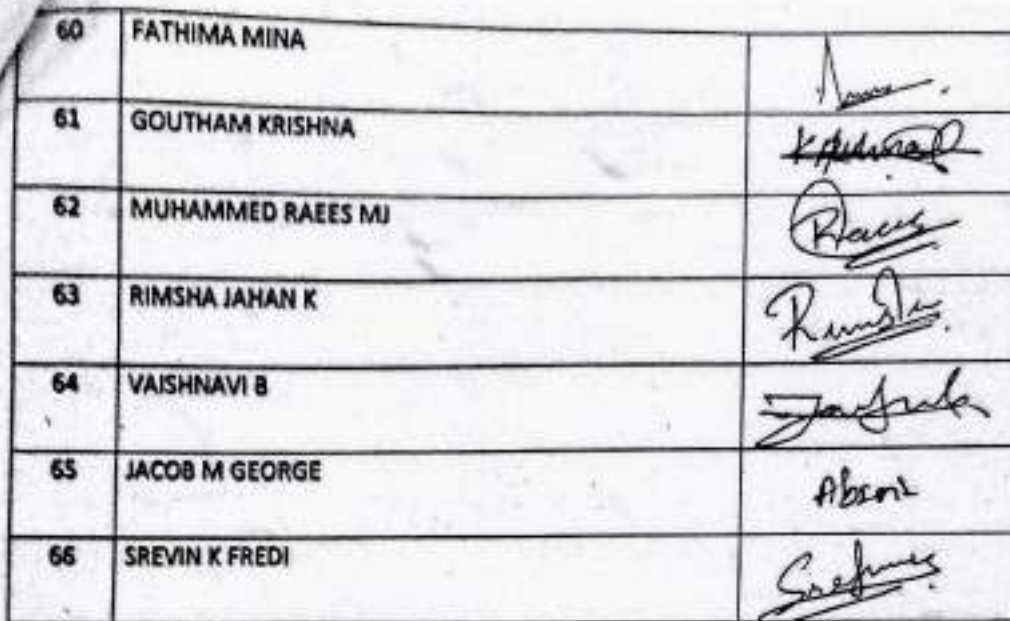 60 FATHIMA MINA
61 GOUTHAM KRISHNA
62 MUHAMMED RAEES MJ Raees
63 RIMSHA JAHAN K
64 VAISHNAVI B
65 JACOB M GEORGE
66 SREVIN K FREDI